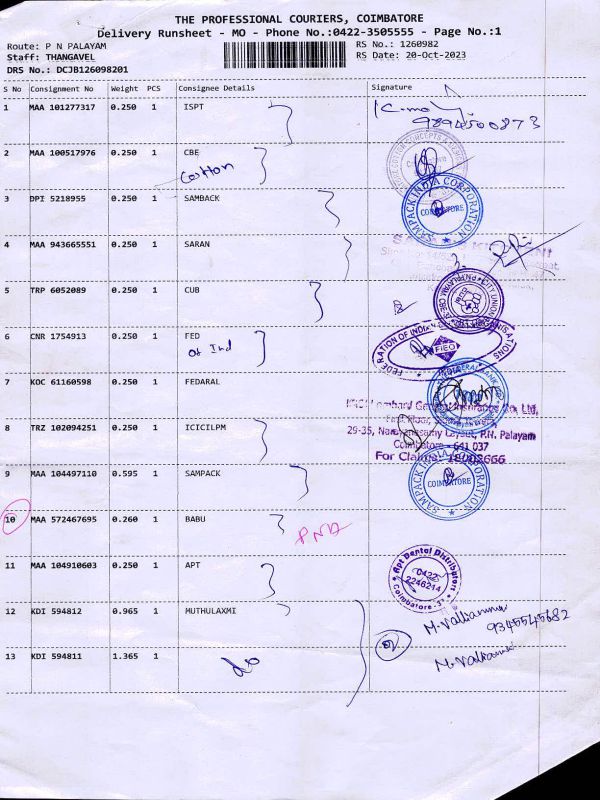 THE PROFESSIONAL COURIERS, COIMBATORE
Delivery Runsheet - MO - Phone No.:0422-3505555 - Page No.:1
Route: P N PALAYAM
RS No.: 1260982
Staff: THANGAVEL
RS Date: 20-Oct-2023
DRS No.: DCJB126098201
S No Consignment No Weight PCS Consignee Details Signature
1 MAA 101277317 0.250 1 ISPT
9894500873
2 MAA 100517976 0.250 1 CBE
Cotton
3 DPI 5218955 0.250 1 SAMBACK
SAMPACK INDIA CORPORATION
COIMBATORE
4 MAA 943665551 0.250 1 SARAN
5 TRP 6052089 0.250 1 CUB
6 CNR 1754913 0.250 1 FED
of Ind
FEDERATION OF INDIAN ORGANISATIONS
FIEO
7 KOC 61160598 0.250 1 FEDARAL
8 TRZ 102094251 0.250 1 ICICILPM
29-35, Narayanasamy Layout, P.N. Palayam
Coimbatore - 641 037
9 MAA 104497110 0.595 1 SAMPACK
SAMPACK INDIA CORPORATION
COIMBATORE
10 MAA 572467695 0.260 1 BABU
PND
11 MAA 104910603 0.250 1 APT
Apt Dental Distributors
0422
2246214
Coimbatore
12 KDI 594812 0.965 1 MUTHULAXMI
M. Valliamma
9345545682
13 KDI 594811 1.365 1
do
M. Valliamma